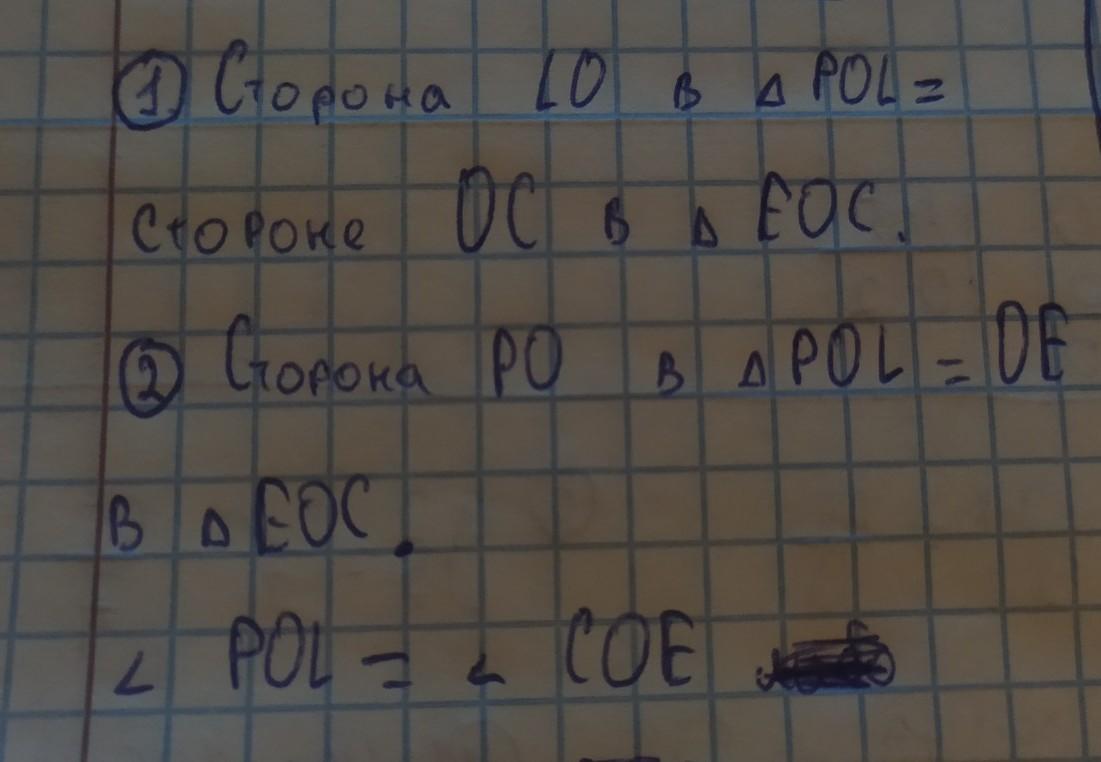 ① Сторона LO в △POL=
стороне OC в △ EOC.
② Сторона PO в △POL = OE
в △EOC.
∠ POL = ∠ COE